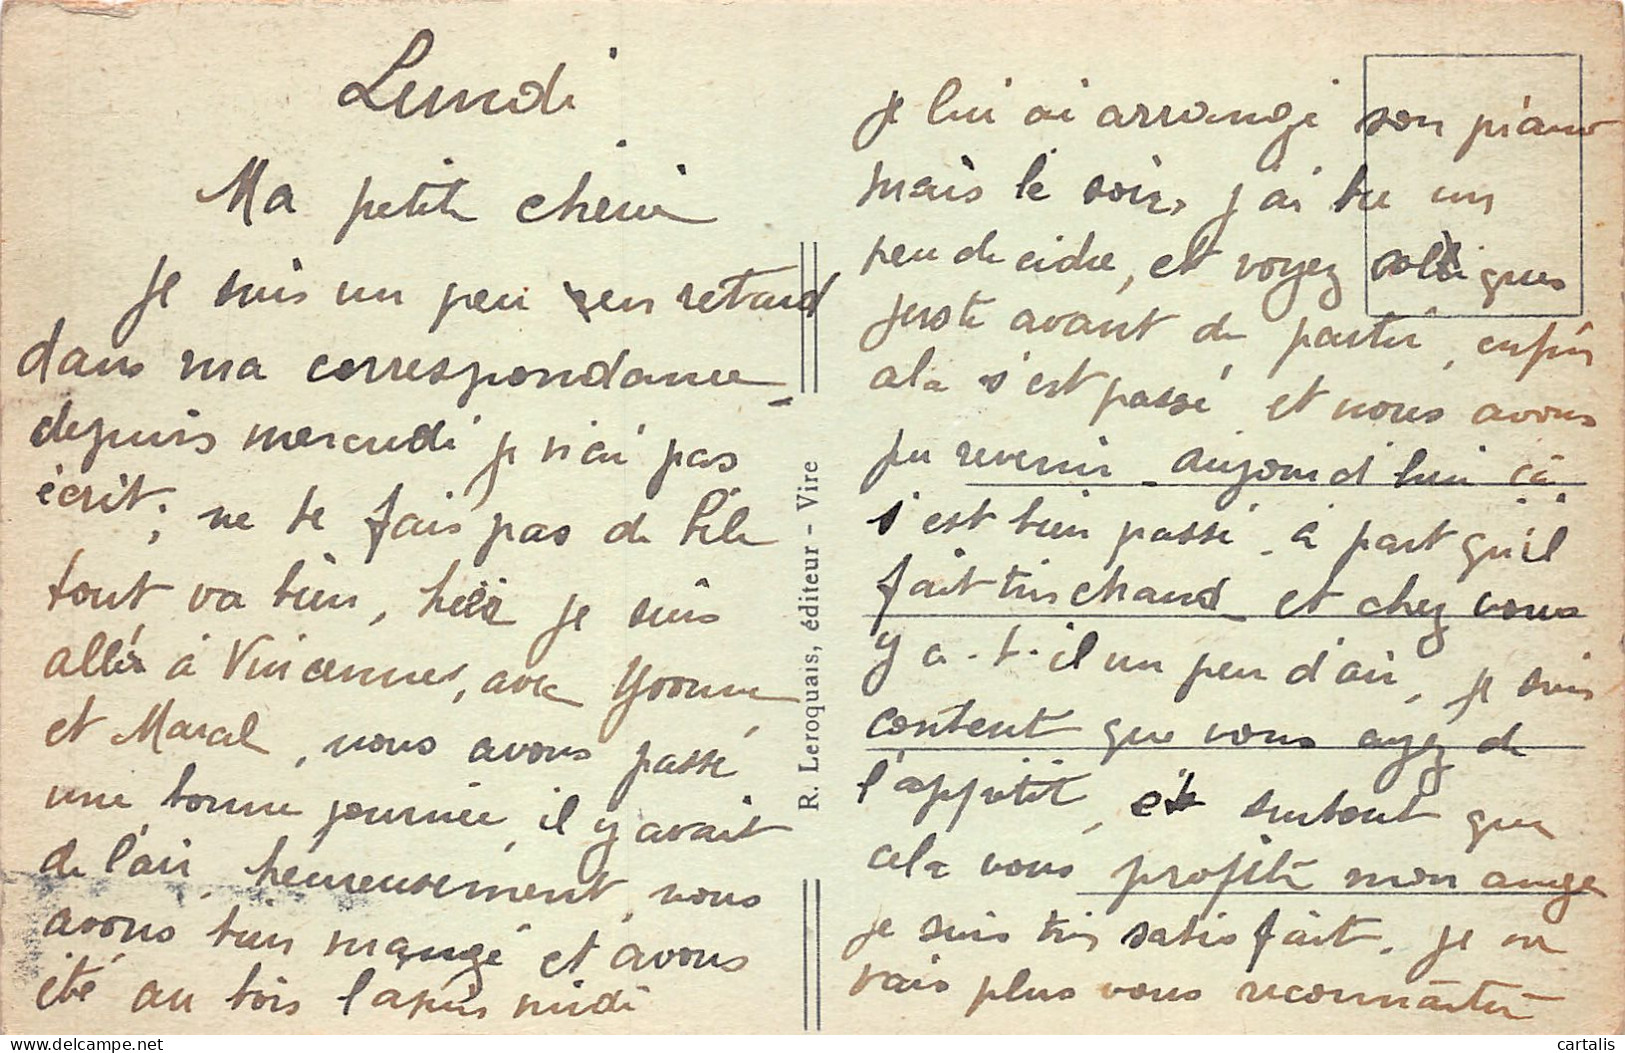 Lundi
Ma petite chérie
je suis un peu en retard
dans ma correspondance
depuis mercredi je n'ai pas
écrit; ne te fais pas de bile
tout va bien, hier je suis
allé à Vincennes, avec Yvonne
et Marcel, nous avons passé
une bonne journée, il y avait
de l'air, heureusement, nous
avons bien mangé et avons
été au bois l'après midi
je lui ai arrangé son piano
mais le soir, j'ai bu un
peu de cidre, et voyez coliques
juste avant de partir, enfin
cela s'est passé et nous avons
pu revenir - aujourd'hui çà
s'est bien passé - à part qu'il
fait très chaud et chez vous
y a-t-il un peu d'air, je suis
content que vous ayez de
l'appétit, et surtout que
cela vous profite mon ange
je suis très satisfait, je ne
vais plus vous reconnaître
R. Leroquais, éditeur - Vire
cartalis